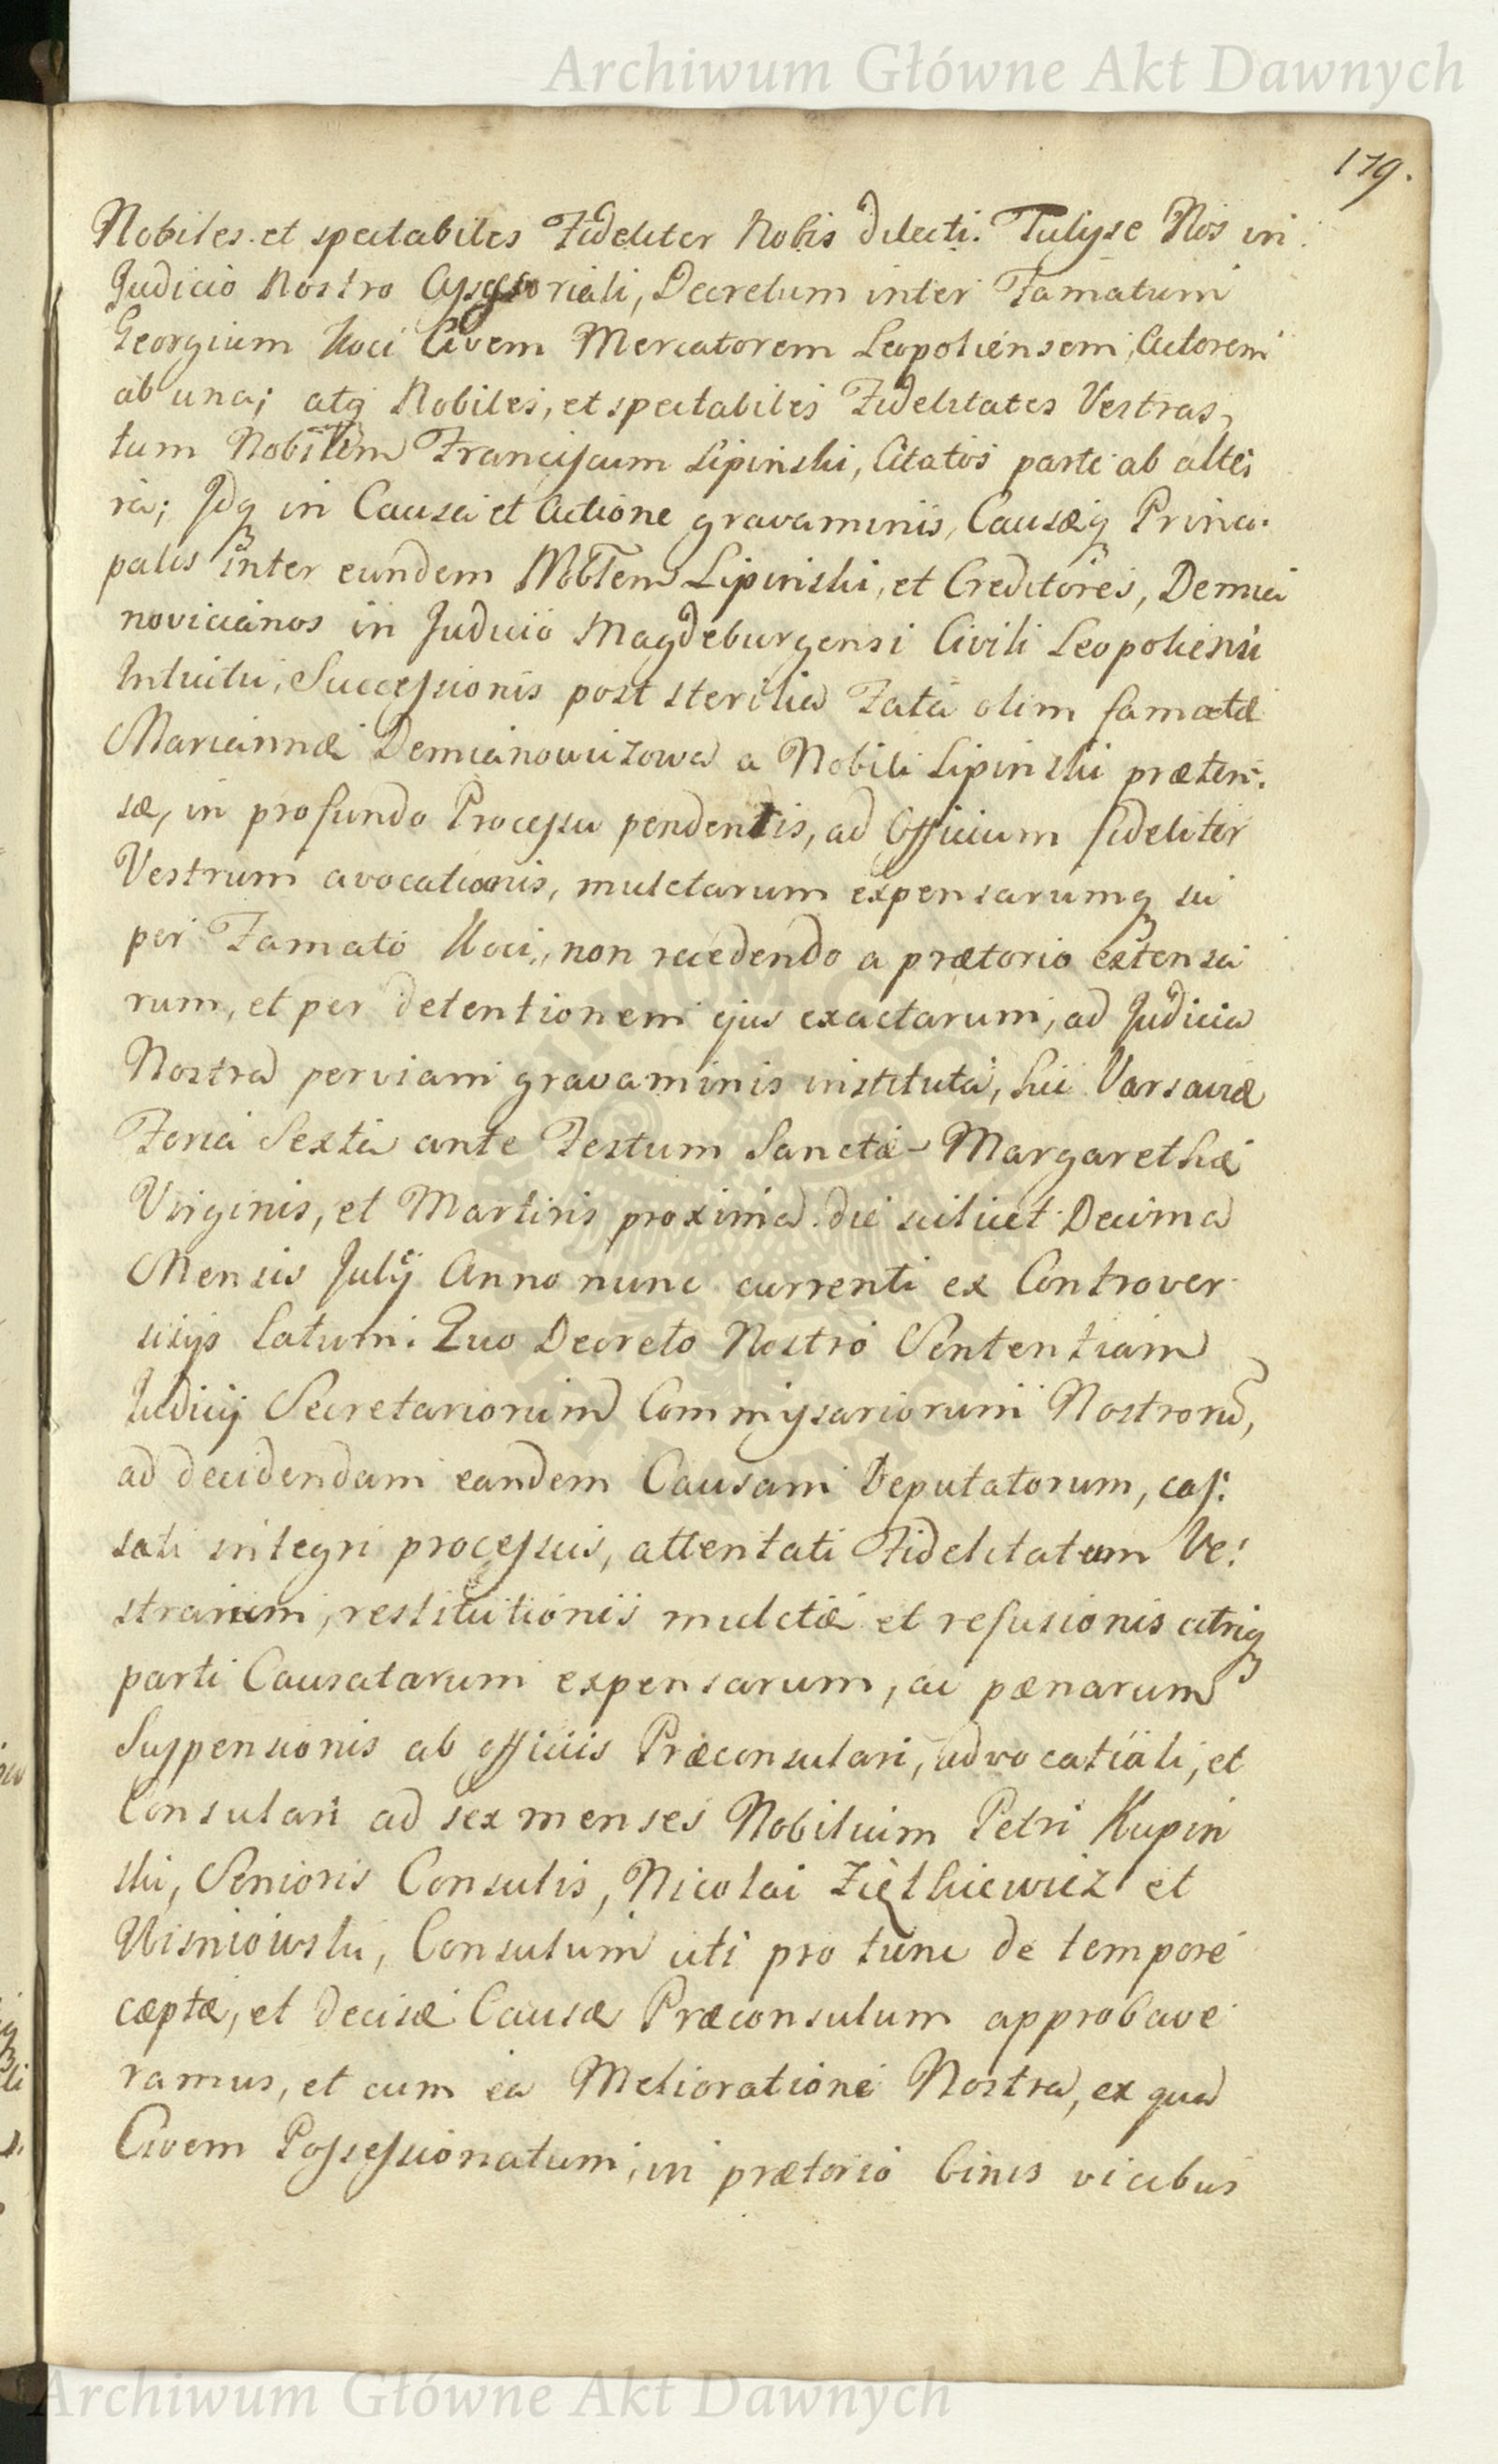 Archiwum Główne Akt Dawnych
179.
Nobiles et spectabiles Fideliter Nobis dilecti. Tulisse Nos in
Judicio Nostro Assessoriali, Decretum inter Famatum
Georgium Koci Civem Mercatorem Leopoliensem, Actorem
ab una; atq Nobiles, et spectabiles Fidelitates Vestras,
tum Nobilem Franciscum Lipinski, Citatos parte ab alte
ra; Idq in Causa et Actione gravaminis, Causæq Princi
palis inter eundem Nobtem Lipinski, et Creditores, Demia
novicianos in Judicio Magdeburgensi Civili Leopoliensi
Intuitu, Successionis post sterilia Fata olim famatæ
Mariannæ Demianowiczowa a Nobili Lipinski præten
sæ, in profundo Processu pendentis, ad Officium fideliter
Vestrum avocationis, mulctarum expensarumq su
per Famato Koci, non recedendo a prætorio extensa
rum, et per detentionem ejus exactarum, ad Judicia
Nostra per viam gravaminis instituta, hic Varsaviæ
Feria Sexta ante Festum Sanctæ Margarethæ
Virginis, et Martiris proxima die scilicet Decima
Mensis July Anno nunc currenti ex Controver
sijs latum. Quo Decreto Nostro Sententiam
Judicij Secretariorum Commissariorum Nostroru,
ad decidendam eandem Causam Deputatorum, cas:
sati integri processus, attentati Fidelitatum Ve:
strarum, restitutionis mulctæ et refusionis utriq
parti Causatarum expensarum, ac pænarum
Suspensionis ab officiis Præconsulari, advocatiali, et
Consulari ad sex menses Nobilium Petri Kupin
ski, Senioris Consulis, Nicolai Ziętkiewicz et
Wisniowski, Consulum uti pro tunc de tempore
cæptæ, et decisæ Causæ Præconsulum approbave
ramus, et cum ea Melioratione Nostra, ex qua
Civem Possessionatum, in prætorio binis vicibus
Archiwum Główne Akt Dawnych